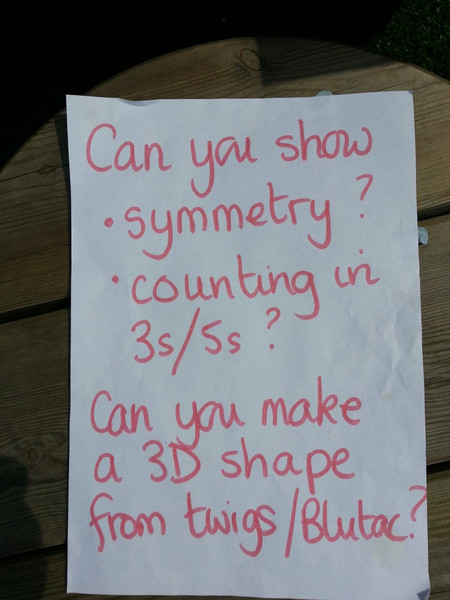 Can you show
• symmetry ?
• counting in
3s/5s ?
Can you make
a 3D shape
from twigs/Blutac?